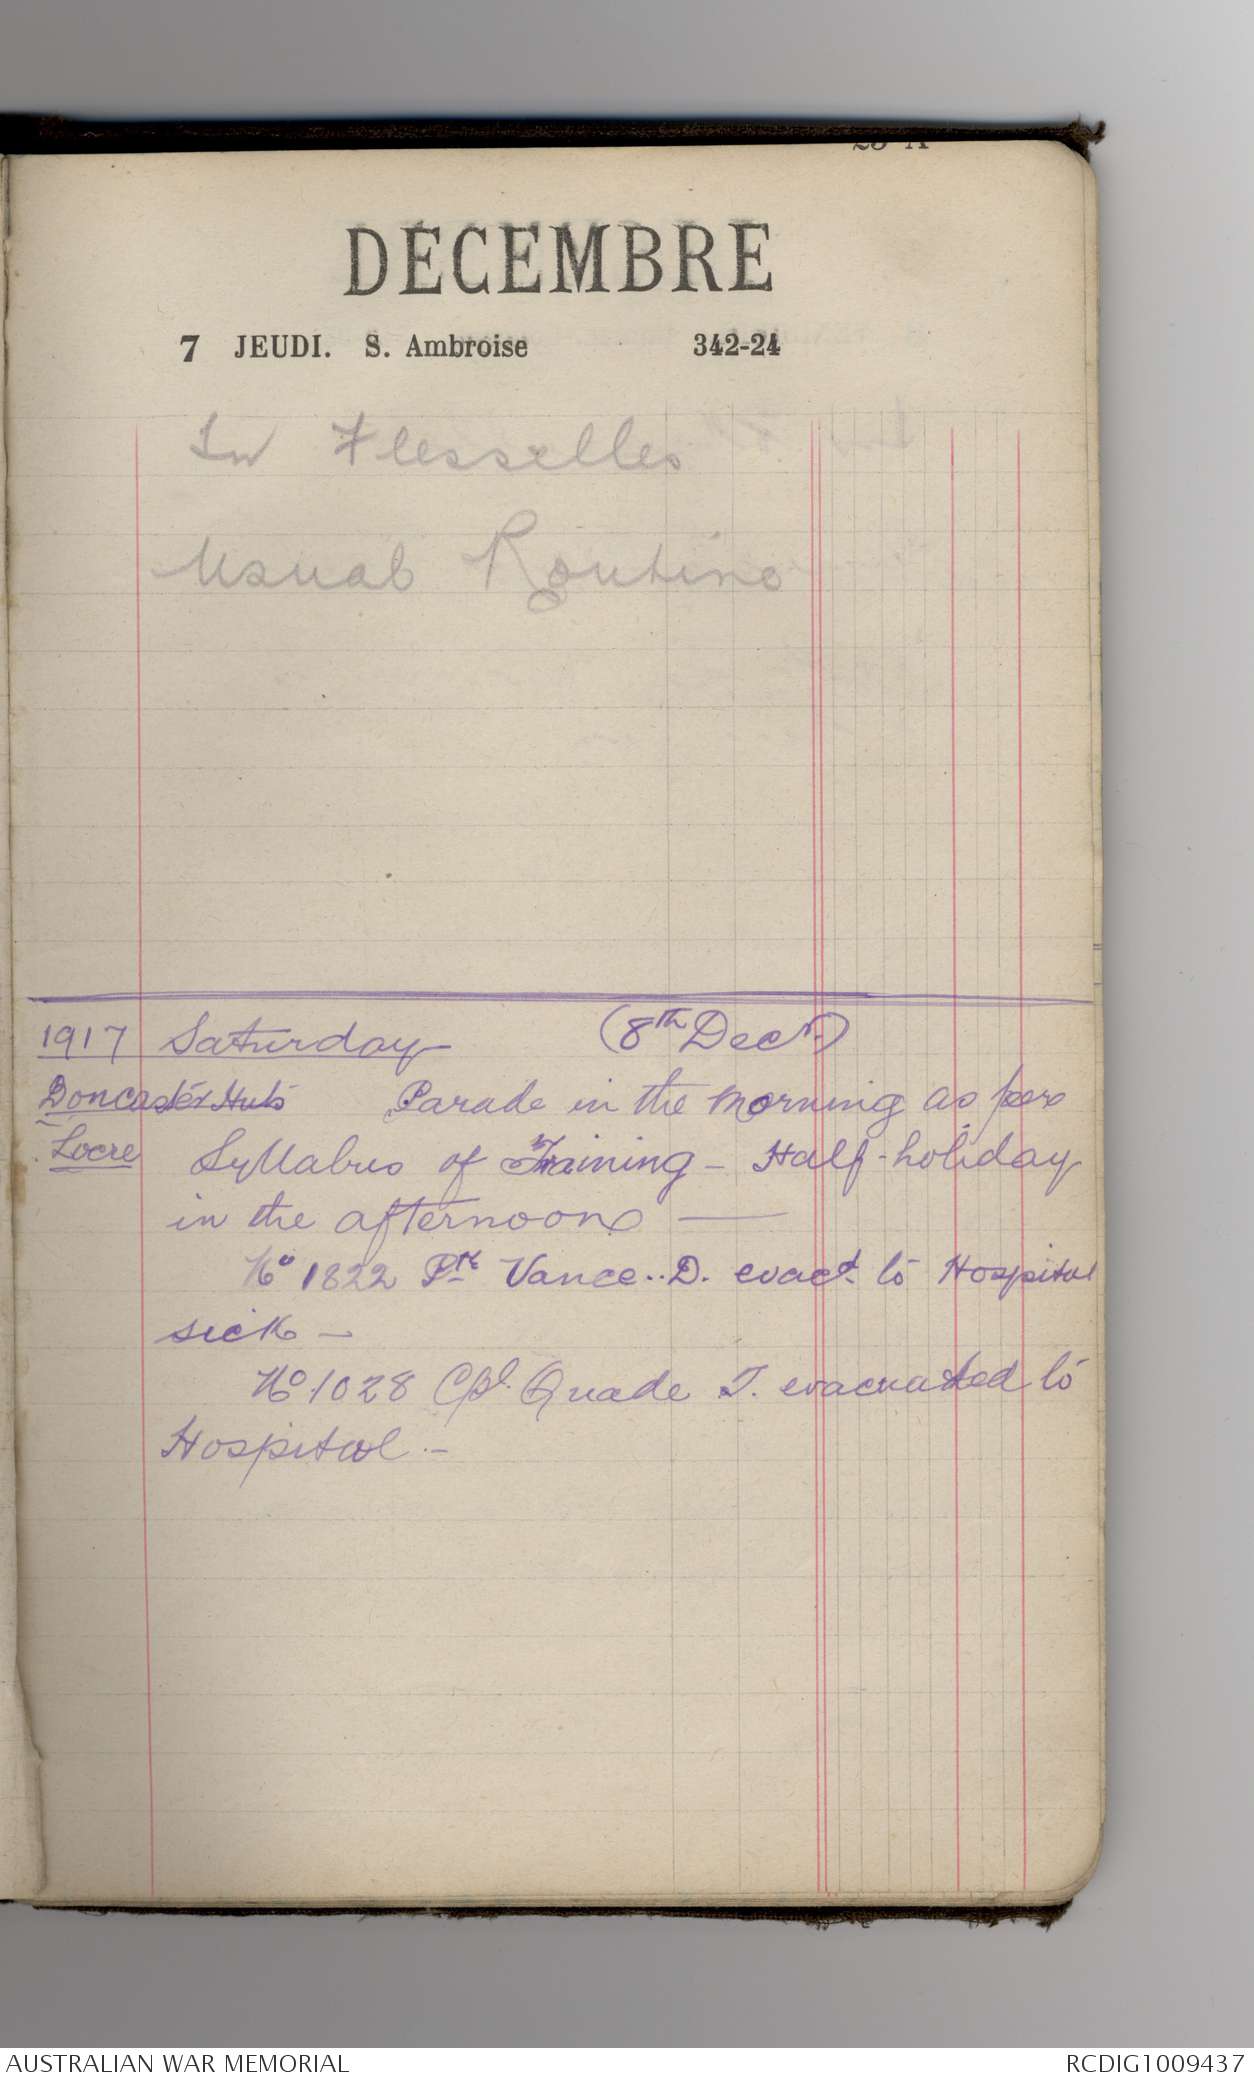 DECEMBRE
7 JEUDI. S. Ambroise 342-24
In Flesselles
Usual Routine
1917 Saturday (8th Decr.)
Doncaster Huts Parade in the morning as per
Locre Syllabus of Training - Half-holiday
in the afternoon —
No 1822 Pte Vance..D. evacd. to Hospital
sick -
No 1028 Cpl. Quade T. evacuated to
Hospital. -
AUSTRALIAN WAR MEMORIAL RCDIG1009437